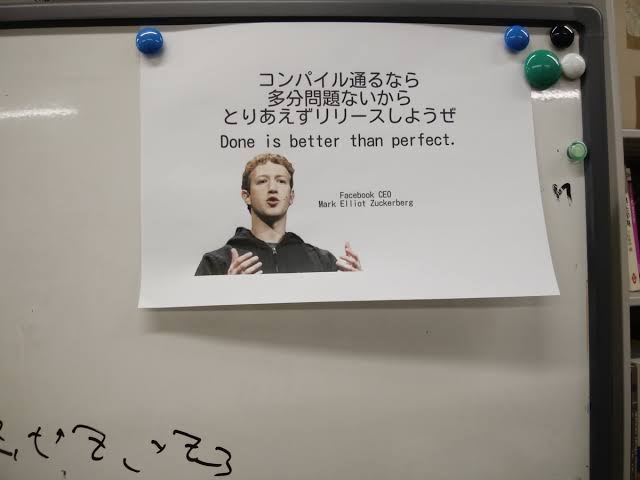 コンパイル通るなら
多分問題ないから
とりあえずリリースしようぜ
Done is better than perfect.
Facebook CEO
Mark Elliot Zuckerberg